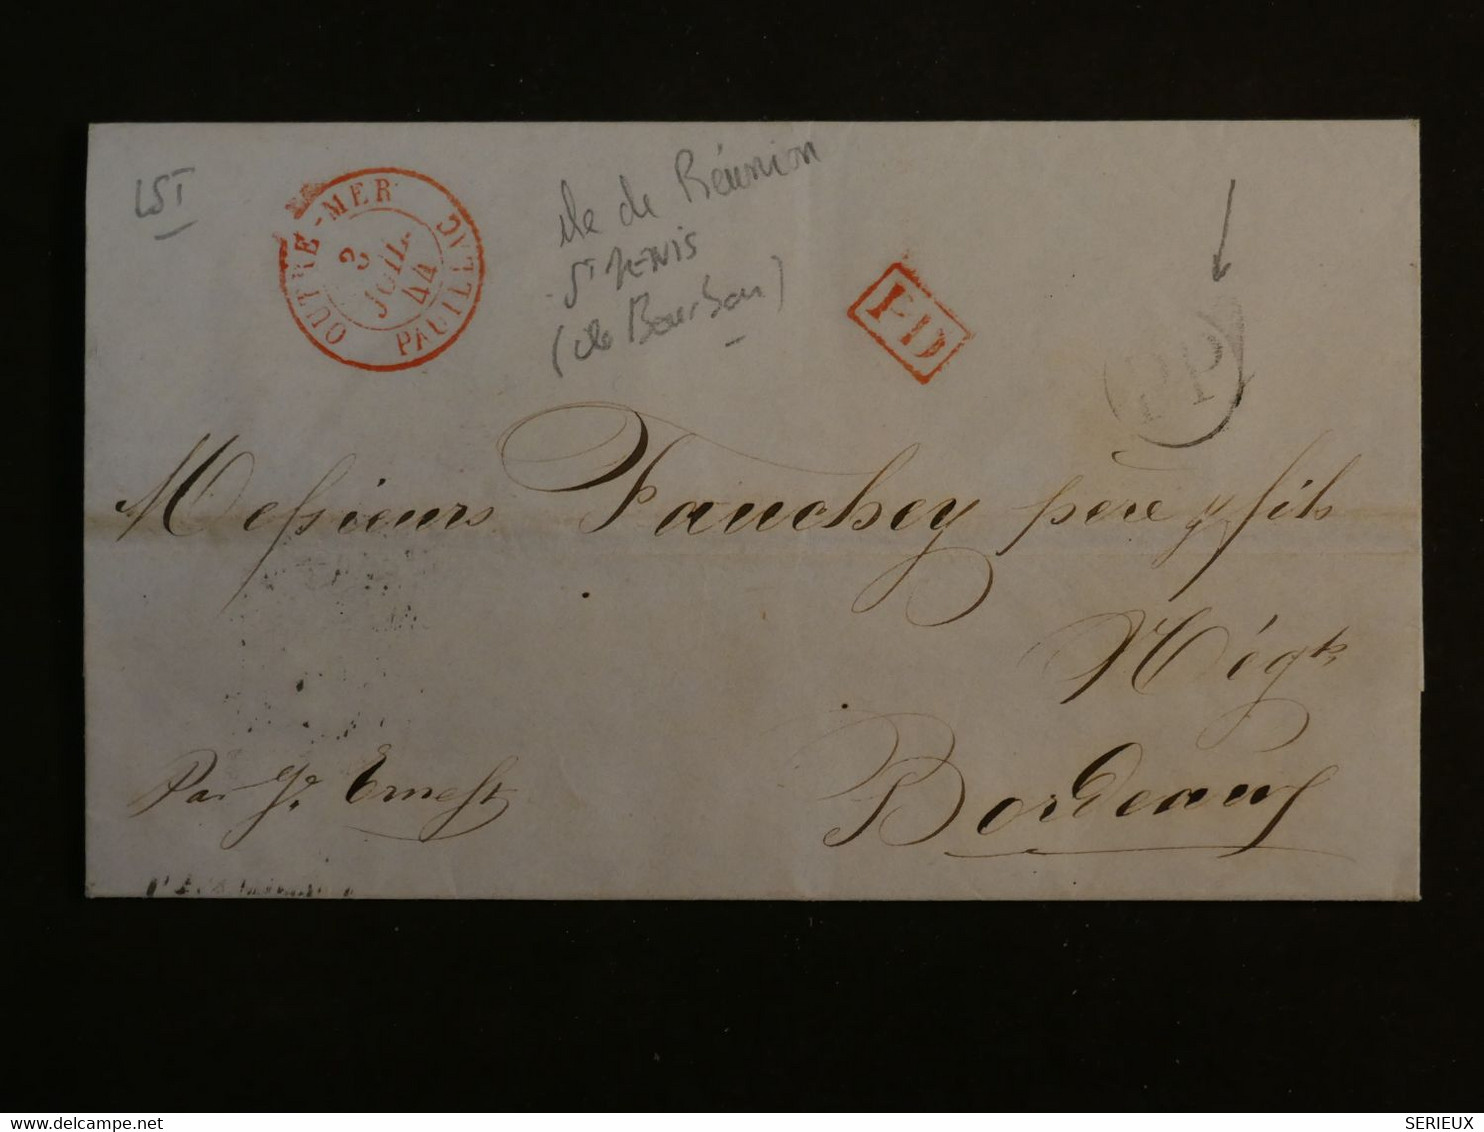 LST
OUTRE-MER
2
JUIL.
44
PAUILLAC
île de Réunion
St DENIS
(île Bourbon)
PD
PP
Messieurs Fauchey père & fils
Négts
Bordeaux
Par Ernest
SERIEUX